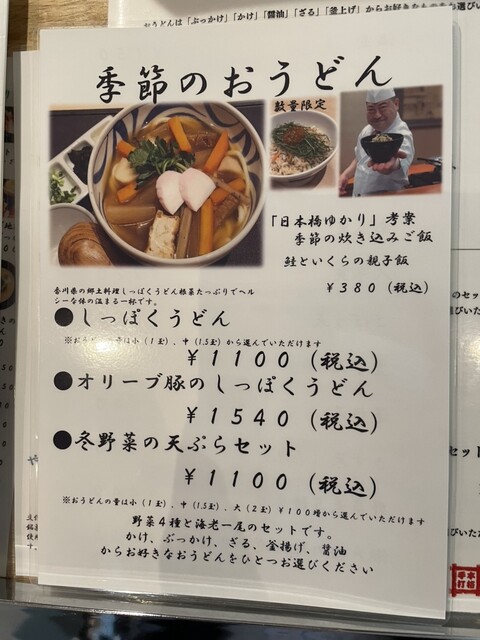 おうどんは「ぶっかけ」「かけ」「醤油」「ざる」「釜上げ」からお好きなものをお選びい
季節のおうどん
数量限定
「日本橋ゆかり」考案
季節の炊き込みご飯
鮭といくらの親子飯
￥380（税込）
香川県の郷土料理しっぽくうどん根菜たっぷりでヘル
シーな体の温まる一杯です。
●しっぽくうどん
は小（1玉）、中（1.5玉）から選んでいただけます
￥1100（税込）
●オリーブ豚のしっぽくうどん
￥1540（税込）
●冬野菜の天ぷらセット
￥1100（税込）
※おうどんの量は小（1玉）、中（1.5玉）、大（2玉）￥100増から選んでいただけます
野菜４種と海老一尾のセットです。
かけ、ぶっかけ、ざる、釜揚げ、醤油
からお好きなおうどんをひとつお選びください